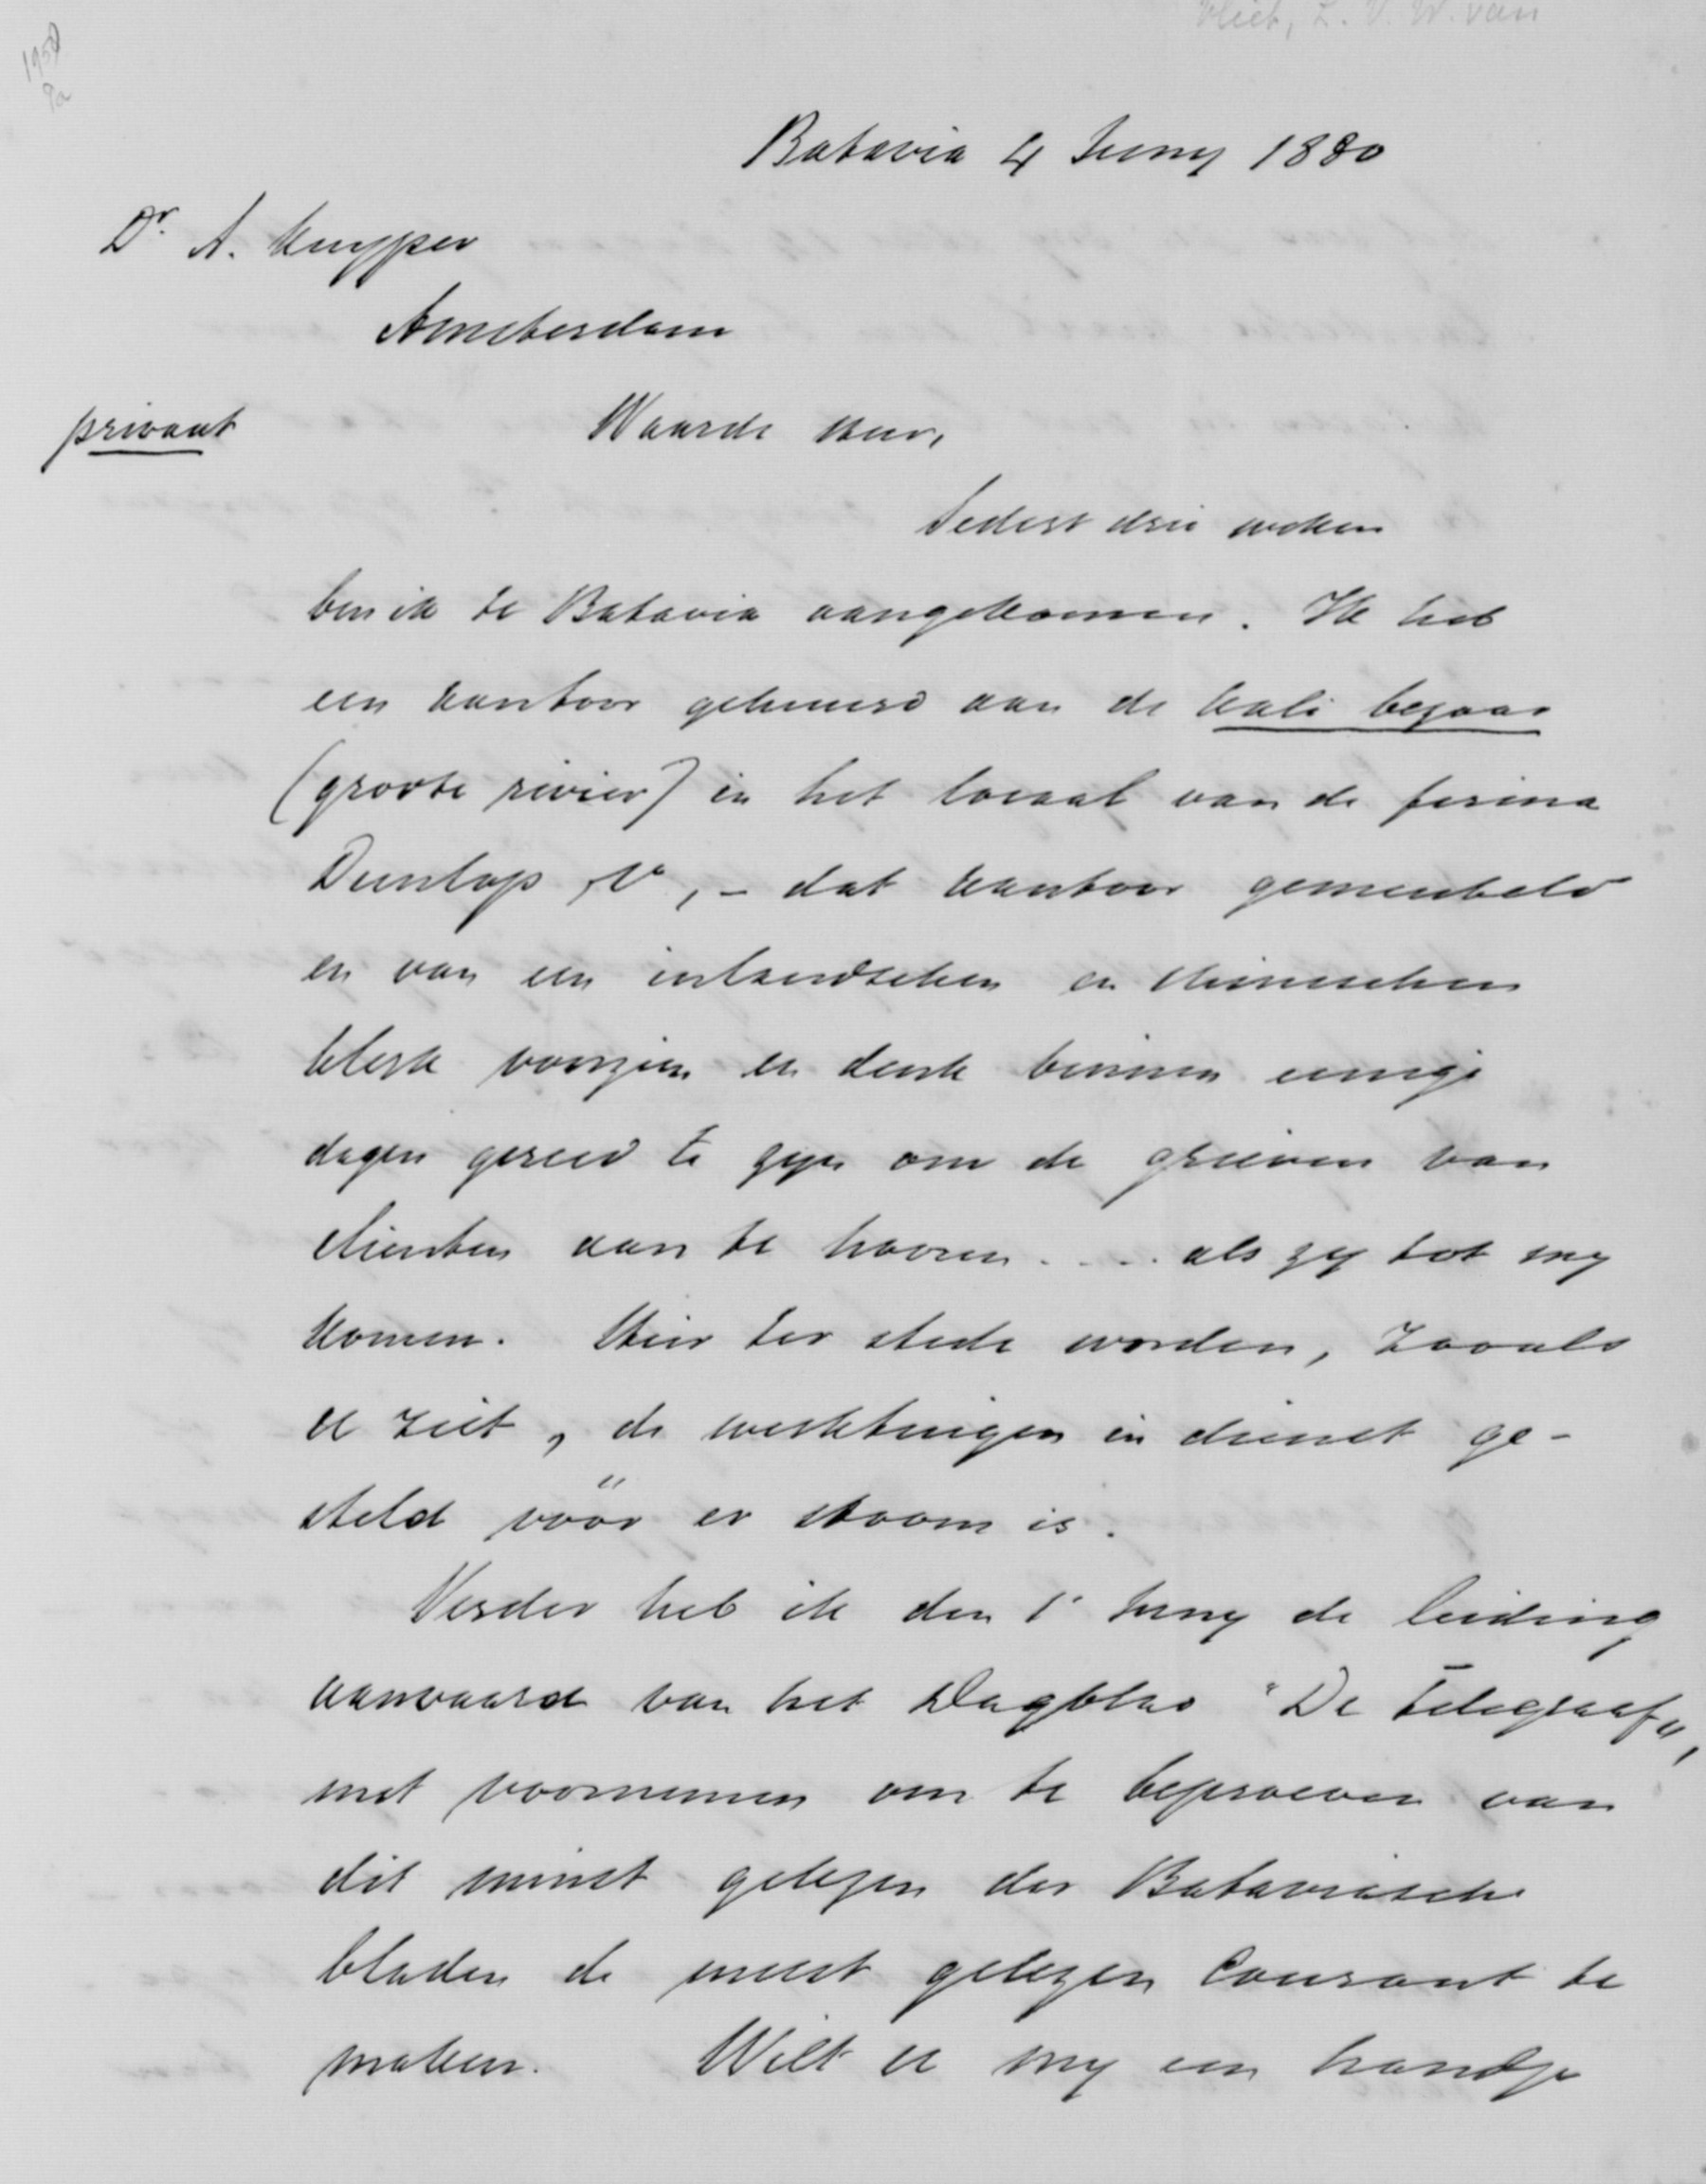 Vliet, L. V. W. van
1958
9a
Batavia 4 Juny 1880
Dr. A. Kuyper
Amsterdam
privaat
Waarde Heer,
Sedert drie weken
ben ik te Batavia aangekomen. Ik heb
een kantoor gehuurd aan de kali bezaar
(groote rivier) in het locaal van de firma
Dunlop & Co, – dat kantoor gemeubeld
en van een inlandschen en Chineschen
klerk voorzien en denk binnen eenige
dagen gereed te zyn om de grieven van
clienten aan te hooren . . . als zy tot my
komen. Hier ter stede worden, zooals
U ziet, de werktuigen in dienst ge-
steld vóór er stoom is.
Verder heb ik den 1e Juny de leiding
aanvaard van het Dagblad "De Telegraaf",
met voornemen om te beproeven van
dit minst gelezen der Bataviasche
bladen de meest gelezen Courant te
maken. Wilt U my een handje